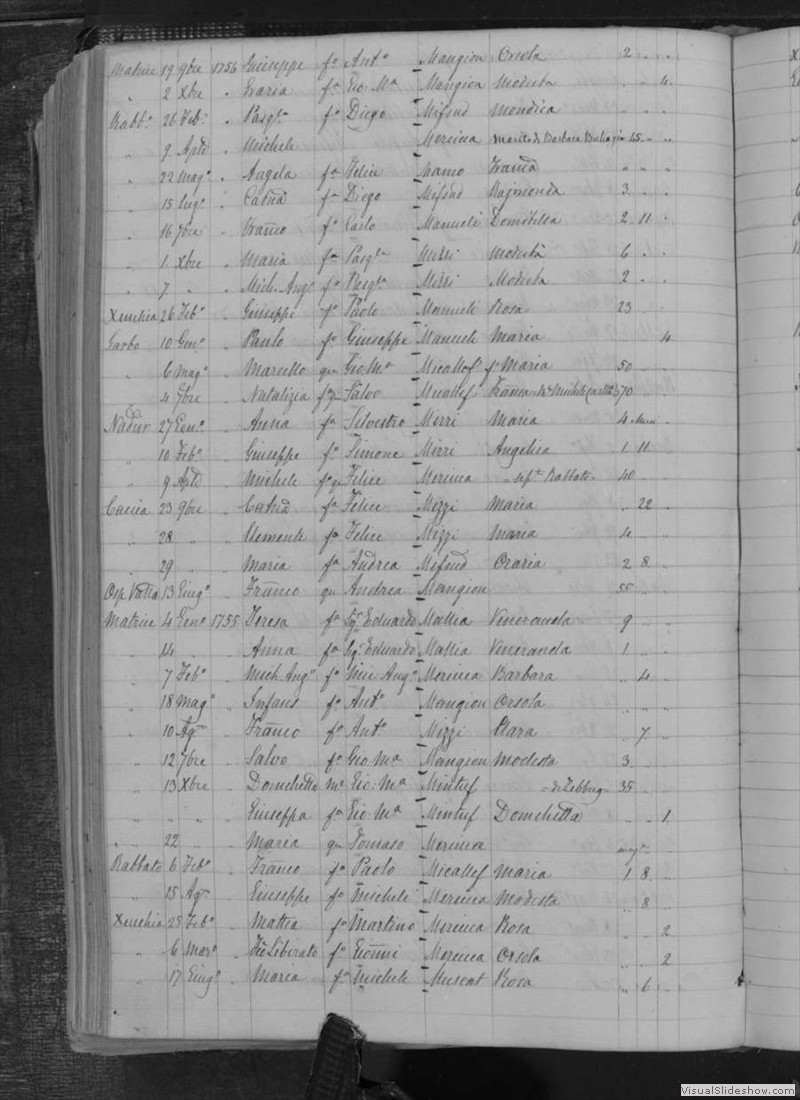 Matrice 19 9bre 1756 Giuseppe fo Anto Mangion Orsola 2 " "
" 2 Xbre " Graria fa Gio: Ma Mangion Modesta " " 4
Rabbo 26 Febo " Pasqle fo Diego Mifsud Mondica " " "
" 9 Aple " Michele Mercieca marito di Barbara 45 " "
" 22 mago " Angela fa Felice Mamo " " "
" 15 lugo " fa Diego Mifsud Raimonda 3 " "
" 16 7bre " Franco fo Carlo Manueli Domitilla 2 11 "
" 1 Xbre " Maria fa Pasqle Mizzi Modesta 6 " "
" 7 " " Mich. Ango fo Pasqle Mizzi Modesta 2 " "
Xeuchia 26 Febo " Giuseppe fo Paolo Manueli Rosa 23 "
Garbo 10 Geno " Paulo fo Giuseppe Manueli Maria " 4
" 6 mago " Marcello qu Gio Ma Micallef fo Maria 50 "
" 4 7bre " Natalizia Salvo Micallef 70
Nadur 27 Geno " Anna fa Silvestro Mizzi Maria 4
" 10 Febo " Giuseppe fo Simone Mizzi Angelica 1 11
" 9 Aple " Michele Felice Mercieca Rabbato 40
Caccia 23 9bre " fa Felice Mizzi Maria " 22
" 28 " " Clemente fo Felice Mizzi Maria 4 "
" 29 " " Maria fa Andrea Mifsud Oraria 2 8
Osp. 13 Giugo " Franco qu Andrea Mangion 55 "
Matrice 4 Geno 1755 Teresa fa Sigr Eduardo Mallia Veneranda 9 "
" 14 " " Anna fa Sigr Eduardo Mallia Veneranda 1 "
" 7 Febo " Mich. Ango fo Mic. Ango Mercieca Barbara " 4
" 18 mago " Infans fo Anto Mangion Orsola " "
" 10 Ago " Franco fo Anto Mizzi Clara " 7
" 12 7bre " Salvo fo Gio Ma Mangion Modesta 3 "
" 13 Xbre " Domchetta me Gio: Ma Mintuf di Zebbug 35 "
" " " " Giuseppa fa Gio: Ma Mintuf Domchetta " " 1
" 22 " " Maria qu Tomaso Mercieca
Rabbato 6 Febo " Franco fo Paolo Micallef Maria 1 8
" 15 Ago " Giuseppe fo Michele Mercieca Modesta " 8
Xeuchia 25 Febo " Mattia fo Martino Mercieca Rosa " " 2
" 6 Maro " Liberato fo Mercieca Orsola " " 2
" 17 Giugo " Maria fa Michele Muscat Rosa " 6
VisualSlideshow.com